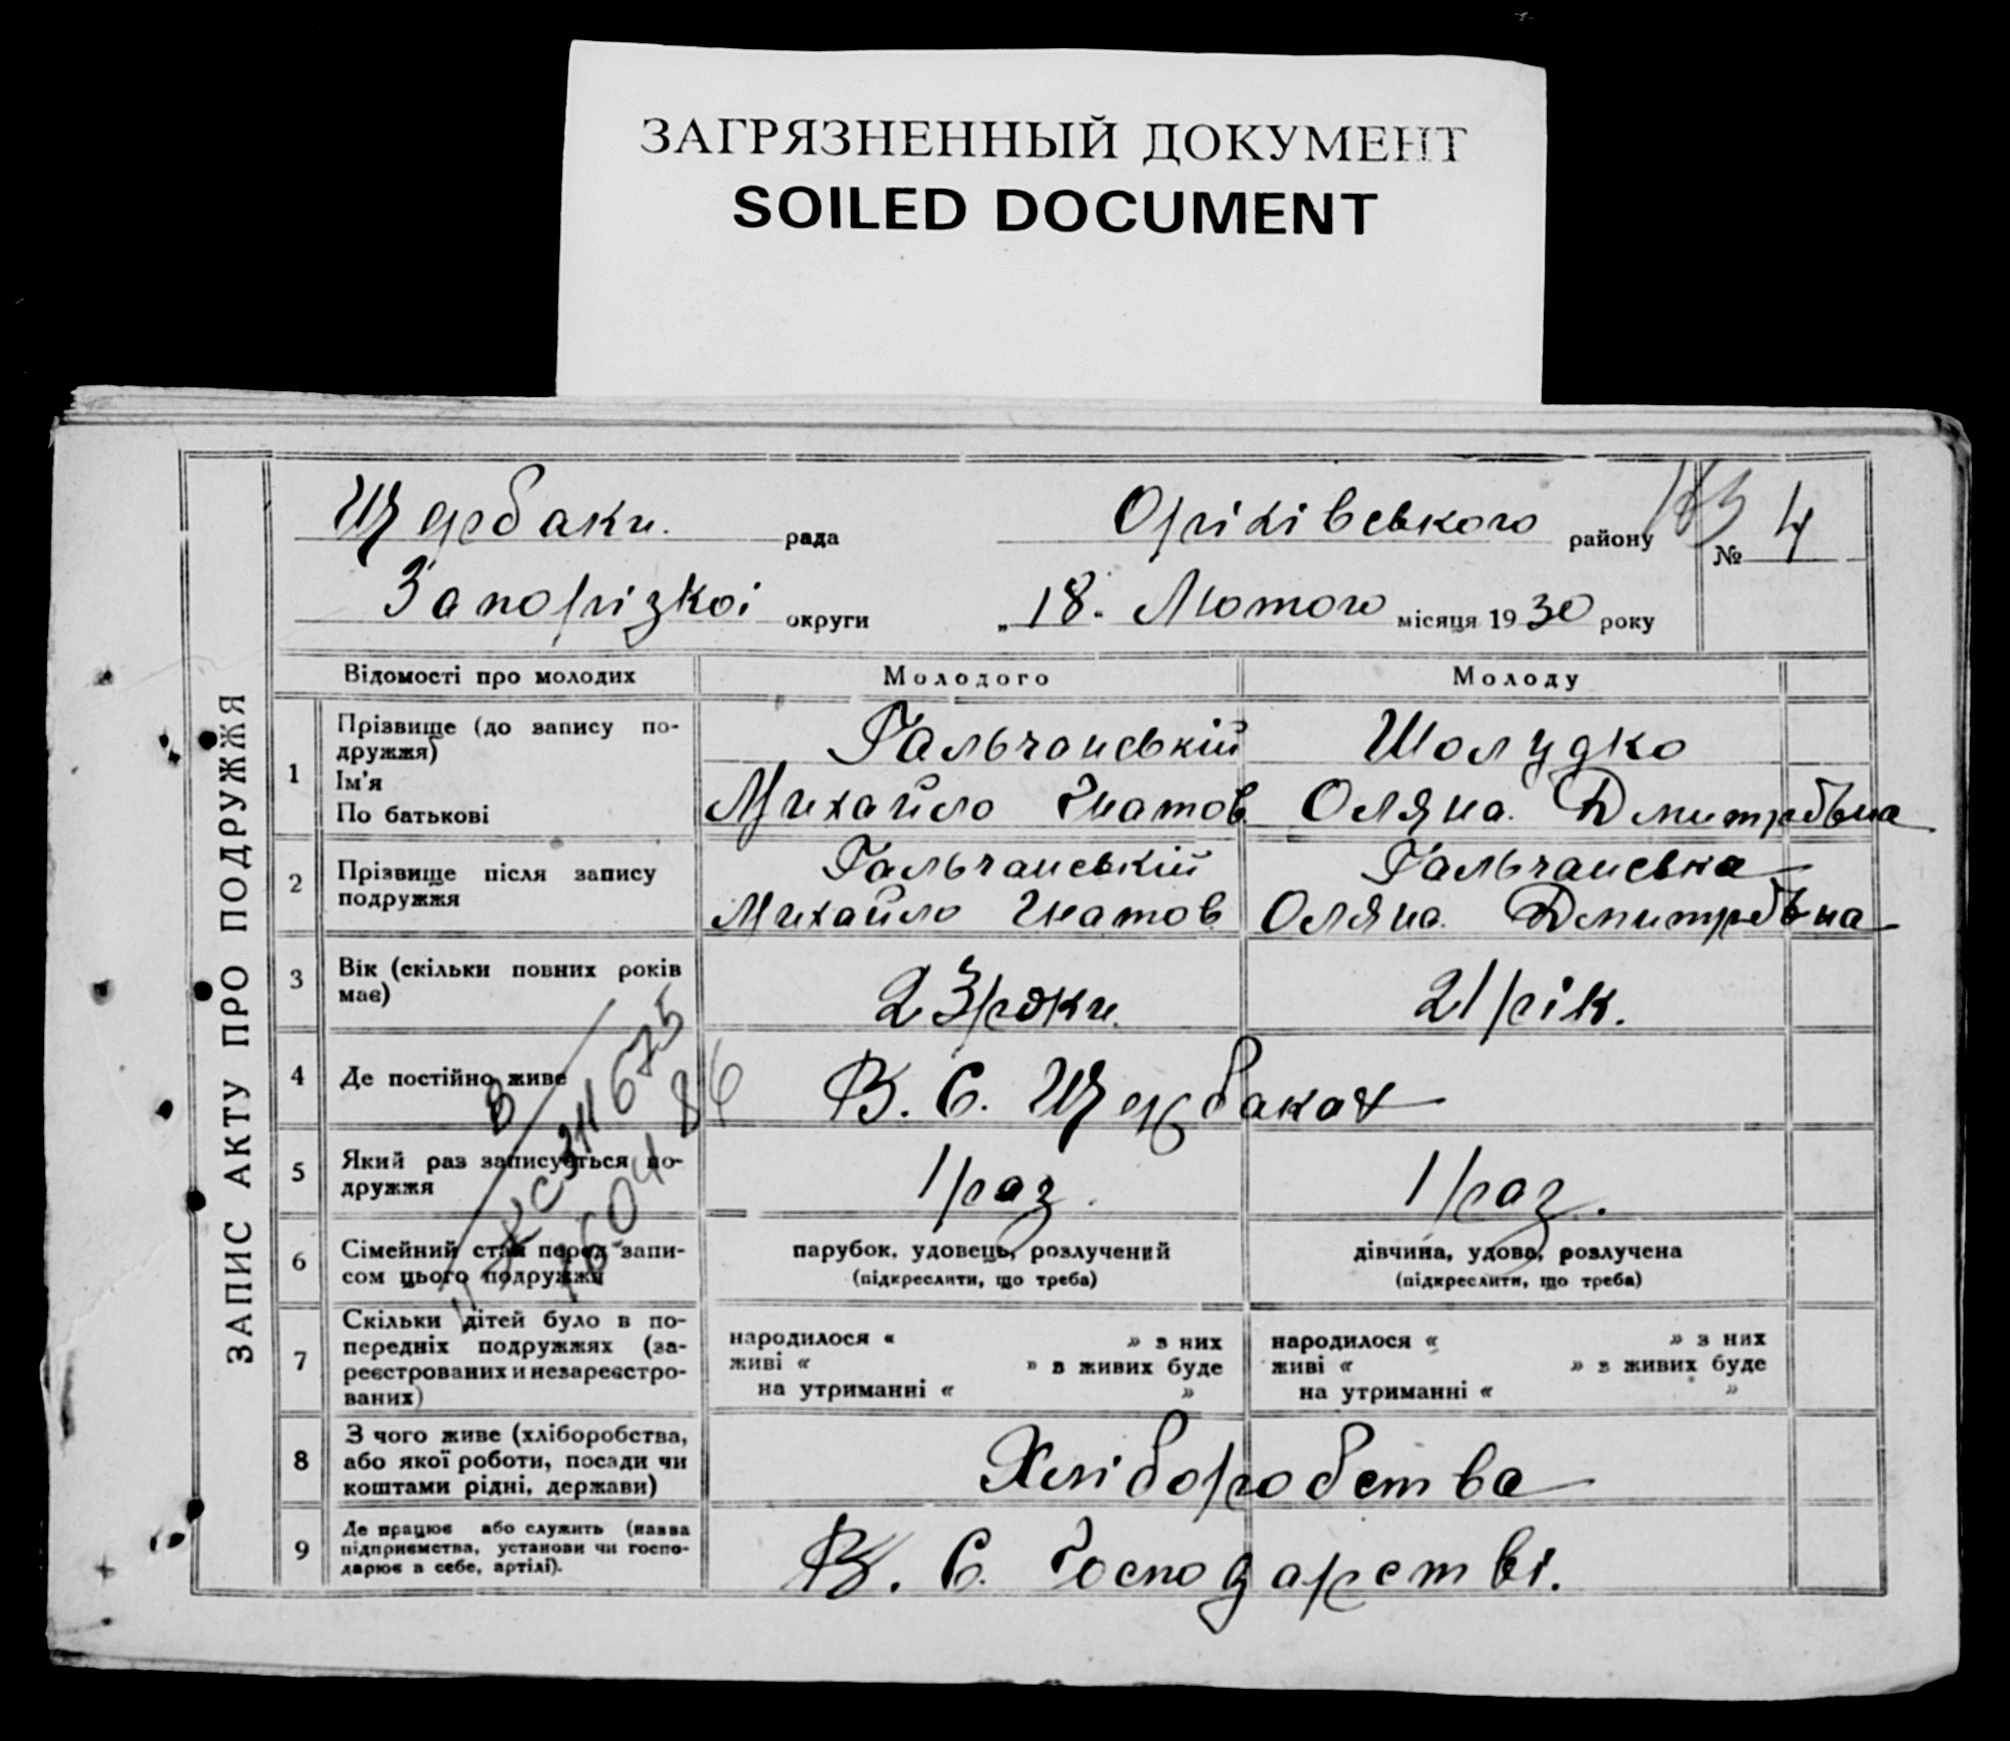 ЗАГРЯЗНЕННЫЙ ДОКУМЕНТ
SOILED DOCUMENT
ЗАПИС АКТУ ПРО ПОДРУЖЖЯ
Щербаки. рада Оріхівського району № 4
Запорізкоі округи „18. Лютого місяця 1930 року
Відомості про молодих Молодого Молоду
1 Прізвище (до запису по-
дружжя)
Ім'я
По батькові
Гальчанський Шолудко
Михайло Гнатов. Оляна. Дмитрівьна
2 Прізвище після запису
подружжя
Гальчанській Гальчанська
Михайло Гнатов Оляна. Дмитрівьна
3 Вік (скільки повних років
має)
23 роки. 21 рік.
4 Де постійно живе В. С. Щербаках
5 Який раз записується по-
дружжя
1 раз. 1 раз.
6 Сімейний стан перед запи-
сом цього подружжя
парубок, удовець, розлучений
(підкреслити, що треба)
дівчина, удова, розлучена
(підкреслити, що треба)
7 Скільки дітей було в по-
передніх подружжях (за-
реєстрованих и незареєстро-
ваних)
народилося « » з них
живі « » з живих буде
на утриманні « »
народилося « » з них
живі « » з живих буде
на утриманні « »
8 З чого живе (хліборобства,
або якої роботи, посади чи
коштами рідні, держави)
Хліборобства
9 Де працює або служить (назва
підприємства, установи чи госпо-
дарює в себе, артілі).
В. С. Господарстві.